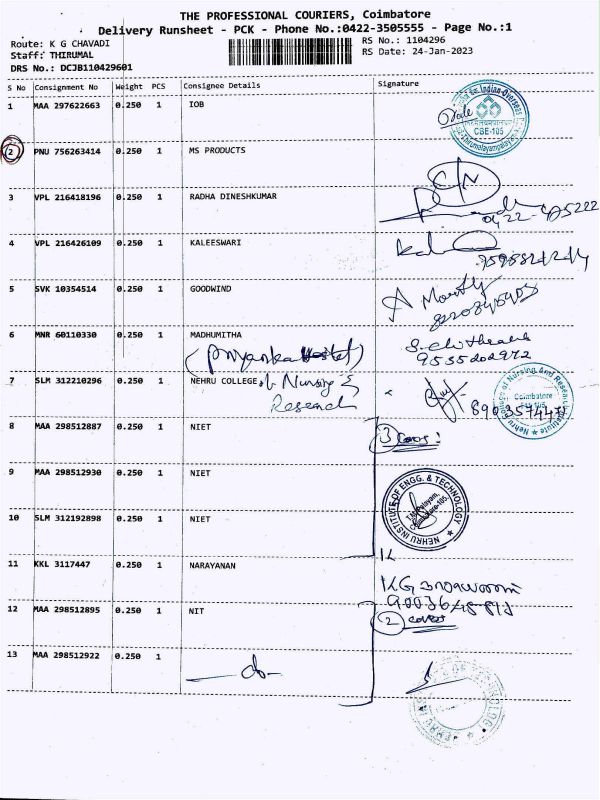 THE PROFESSIONAL COURIERS, Coimbatore
Delivery Runsheet - PCK - Phone No.:0422-3505555 - Page No.:1
Route: K G CHAVADI
RS No.: 1104296
Staff: THIRUMAL
RS Date: 24-Jan-2023
DRS No.: DCJB110429601
S No Consignment No Weight PCS Consignee Details Signature
1 MAA 297622663 0.250 1 IOB
CBE-105
2 PNU 756263414 0.250 1 MS PRODUCTS
3 VPL 216418196 0.250 1 RADHA DINESHKUMAR
4 VPL 216426109 0.250 1 KALEESWARI
5 SVK 10354514 0.250 1 GOODWIND
6 MNR 60110330 0.250 1 MADHUMITHA
(Priyanka Hostel)
9535202972
7 SLM 312210296 0.250 1 NEHRU COLLEGE of Nursing &
Research
Coimbatore
8903574471
8 MAA 298512887 0.250 1 NIET
3 covers
9 MAA 298512930 0.250 1 NIET
NEHRU INSTITUTE OF ENGG. & TECHNOLOGY
T.M. Palayam,
Coimbatore-105.
10 SLM 312192898 0.250 1 NIET
11 KKL 3117447 0.250 1 NARAYANAN
12 MAA 298512895 0.250 1 NIT
2 covers
13 MAA 298512922 0.250 1 — do —